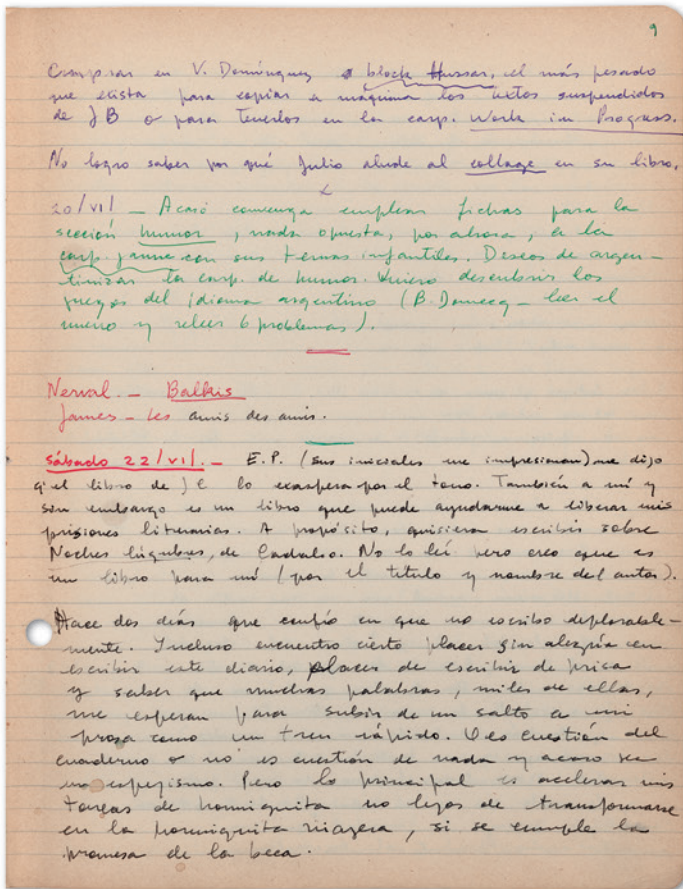 9
Comprar en V. Domínguez block Hussar, el más pesado
que exista para copiar a máquina los textos suspendidos
de JB o para tenerlos en la carp. Work in Progress.
No logro saber por qué Julio alude al collage en su libro.
20/VI/ — Acaso convenga emplear fichas para la
sección humor, nada opuesta, por ahora, a la
carp. con sus temas infantiles. Deseos de argen-
tinizar la carp. de humor. Quiero descubrir los
juegos del idioma argentino (B. Domecq — leer el
nuevo y releer 6 problemas).
Nerval. — Balkis
James — Les amis des amis.
Sábado 22/VI/. — E.P. (sus iniciales me impresionan) me dijo
q' el libro de JC lo exaspera por el tono. También a mí y
sin embargo es un libro que puede ayudarme a liberar mis
prisiones literarias. A propósito, quisiera escribir sobre
Noches lúgubres, de Cadalso. No lo leí pero creo que es
un libro para mí (por el título y nombre del autor).
Hace dos días que confío en que no escribo deplorable-
mente. Incluso encuentro cierto placer sin alegría en
escribir este diario, placer de escribir de prisa
y saber que muchas palabras, miles de ellas,
me esperan para subir de un salto a mi
prosa como un tren rápido. O es cuestión del
cuaderno o no es cuestión de nada y acaso sea
un espejismo. Pero lo principal es acelerar mis
tareas de hormiguita no lejos de transformarse
en la hormiguita viajera, si se cumple la
promesa de la beca.